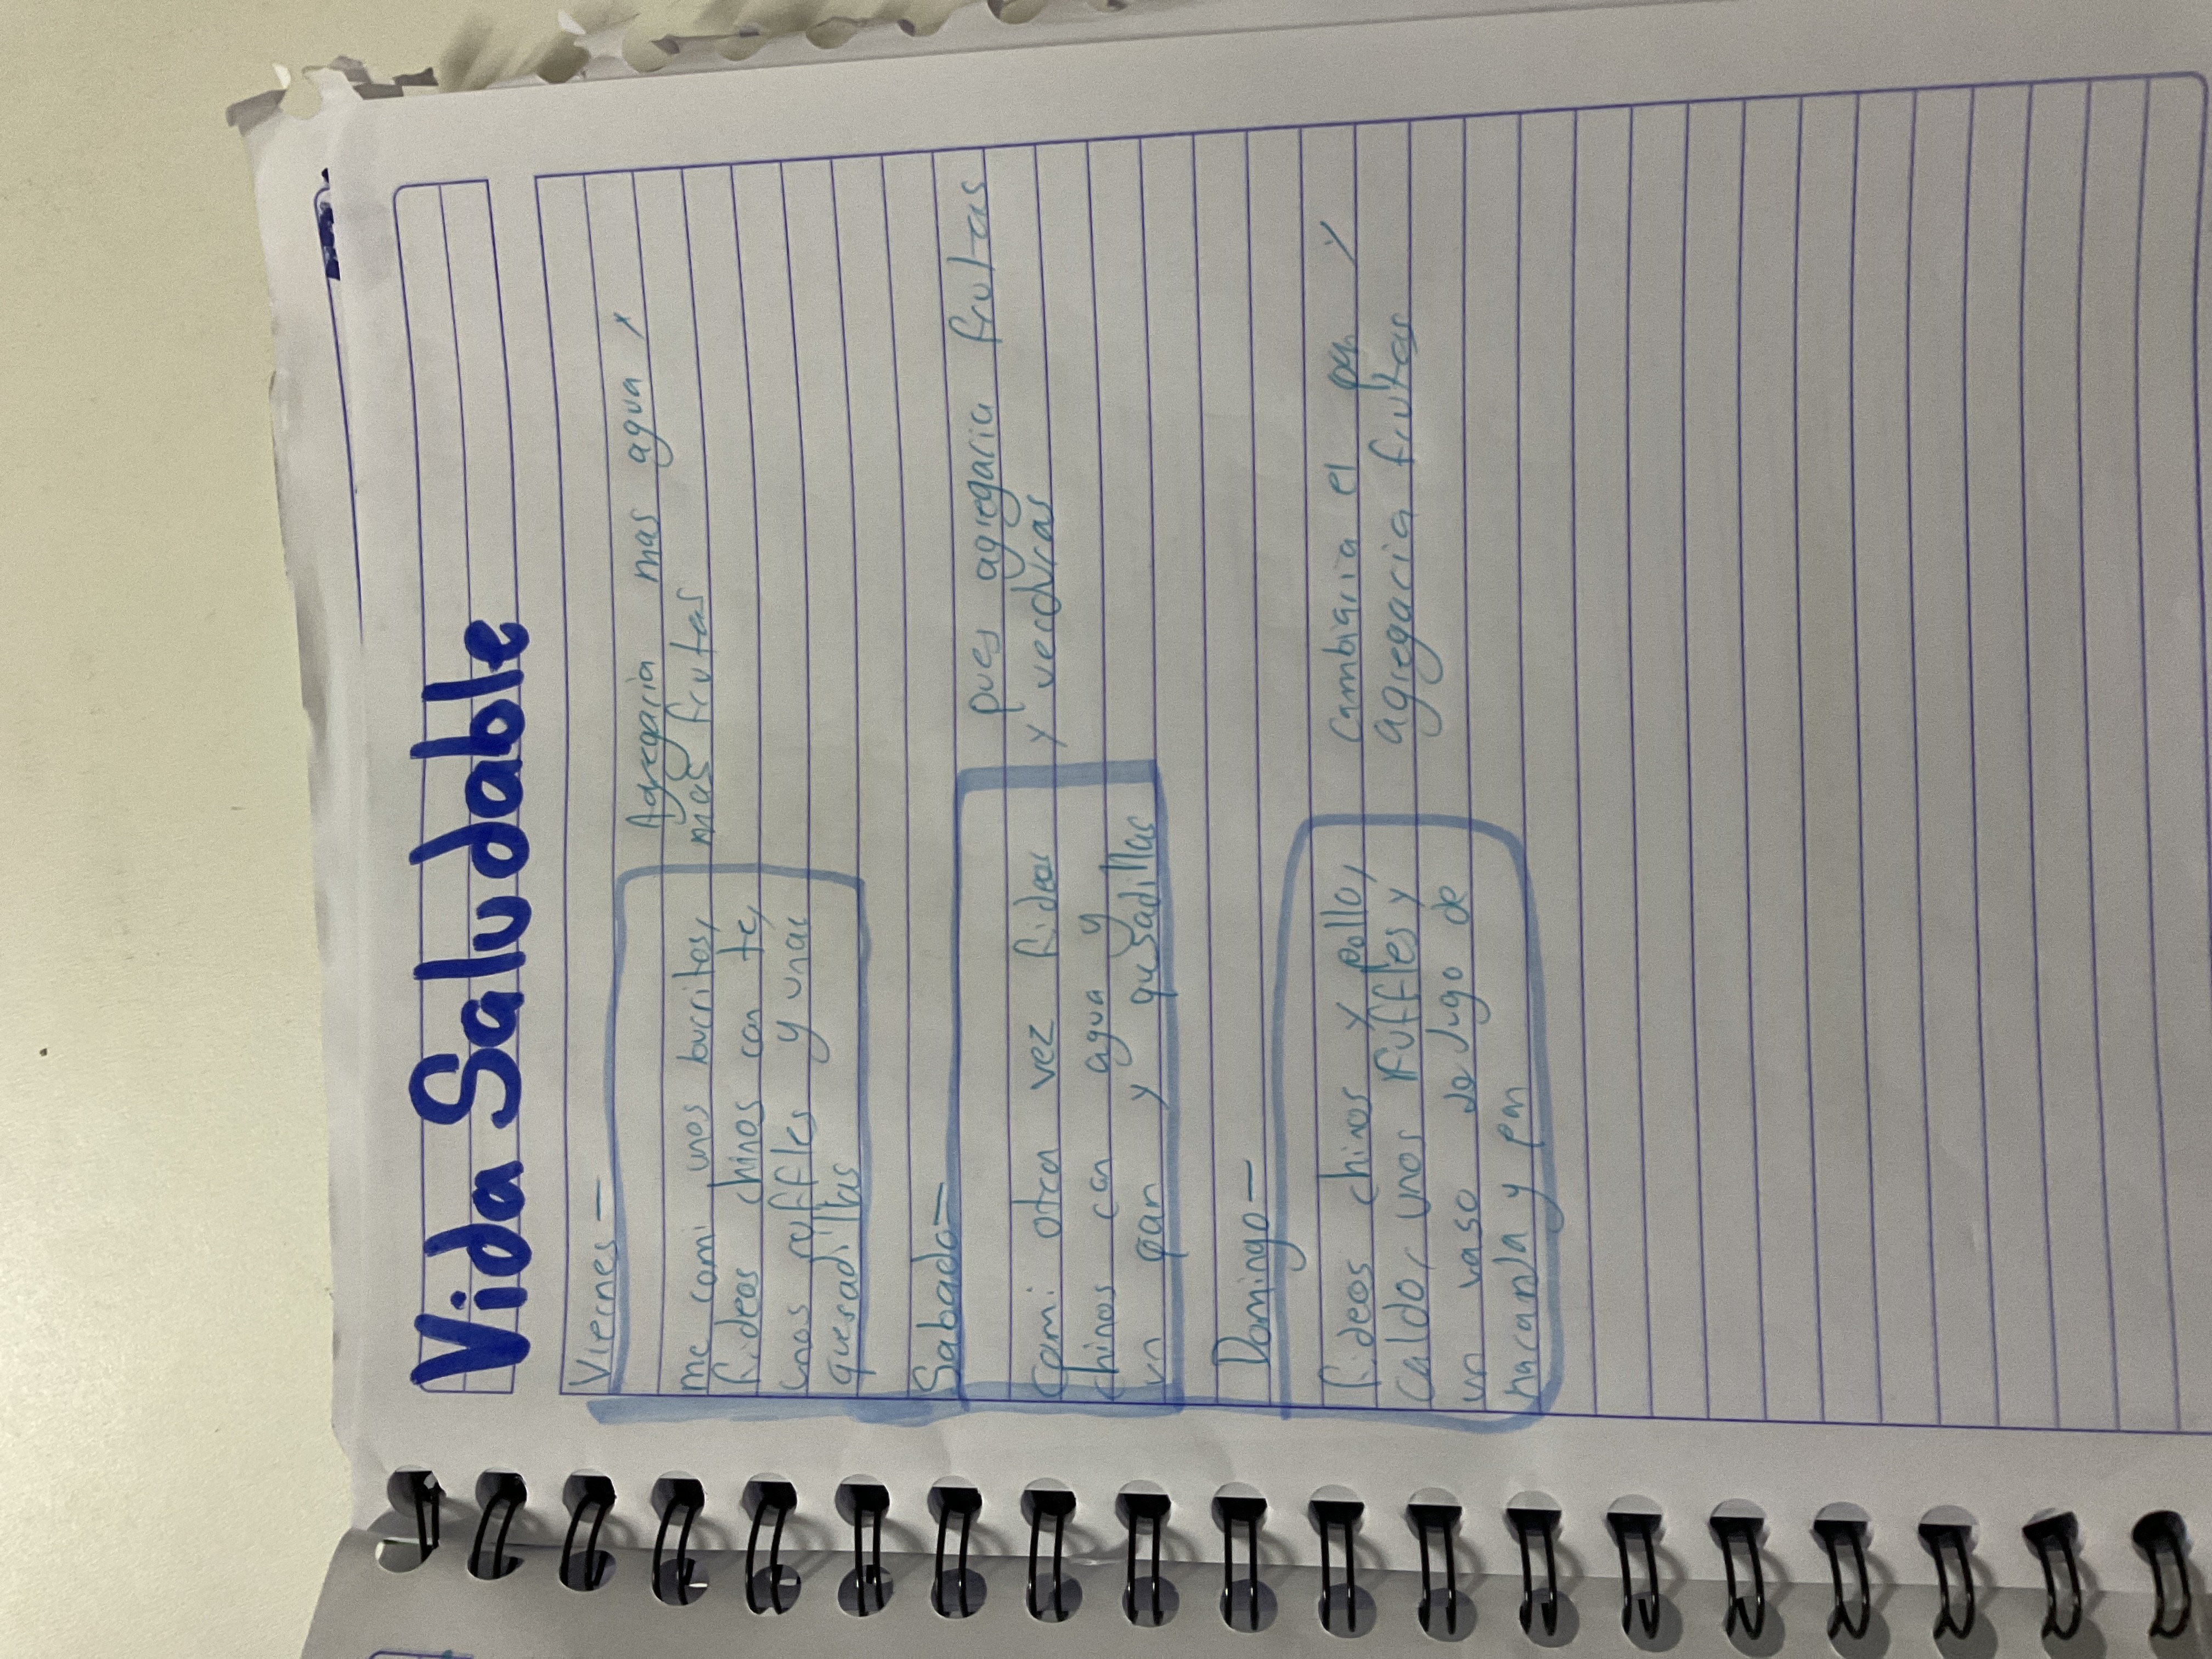 Vida Saludable
Viernes—
me comi unos burritos,
fideos chinos con te,
unos ruffles y unas
quesadillas
Agregaria mas agua y
mas frutas
Sabado—
Comi otra vez fideos
chinos con agua y
un pan y quesadillas
pues agregaria frutas
y verduras
Domingo—
fideos chinos y pollo,
Caldo, unos Ruffles y
un vaso de Jugo de
naranja y pan
Cambiaria el pan y
agregaria frutas